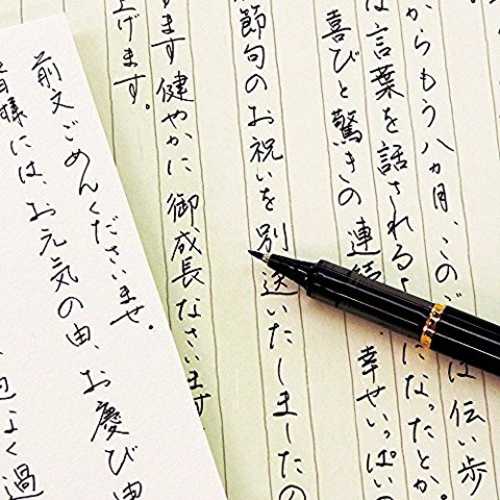 からもう八か月、このご
は伝い歩
言葉を話される
になったとか。
喜びと驚きの連続
幸せいっぱいの
節句のお祝いを別送いたしましたの
ます健やかに御成長なさいます
上げます。
前文ごめんくださいませ。
皆様には、お元気の由、お慶び申
よく過